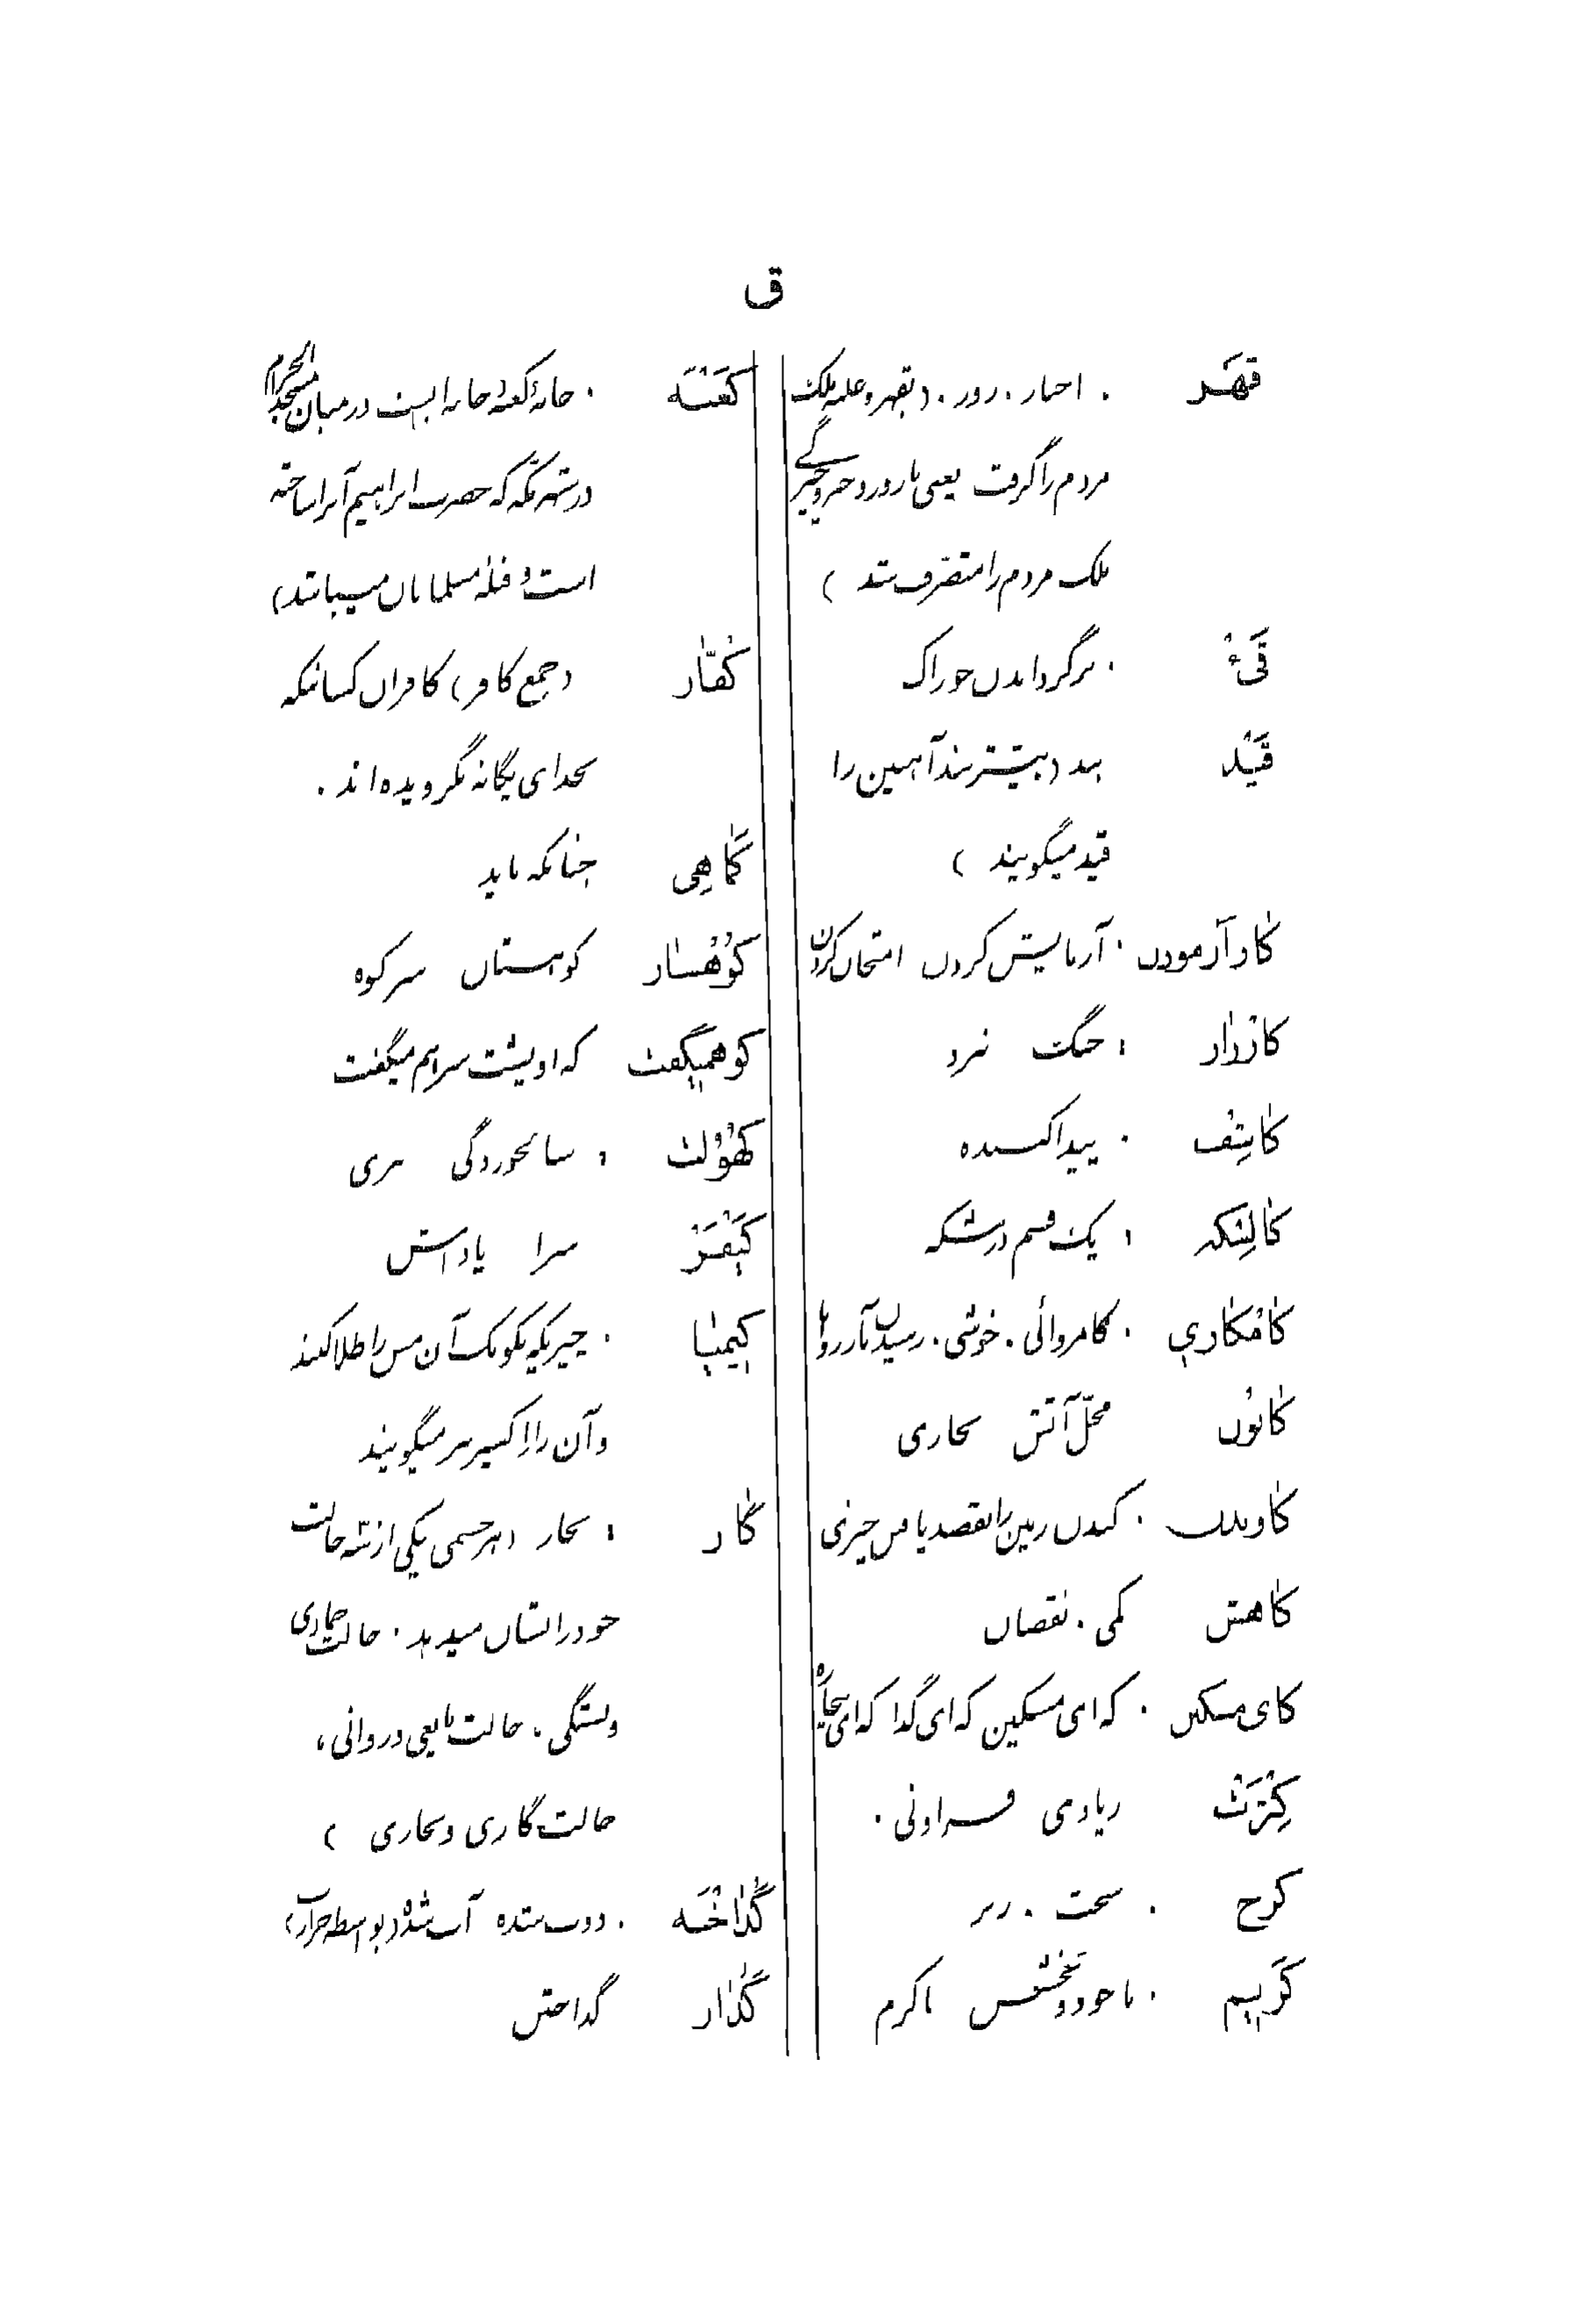 ق
قهَر . اجبار . زور . (بقهر و غلبه ملک
مردم را گرفت یعنی با زور و جبر و چیرگی
ملک مردم را متصرّف شد)
قَیْ . برگرداندن خوراک
قَیْد بند (بیشتر بند آهنین را
قید میگویند)
کار آزمودن . آزمایش کردن امتحان کردن
کارْزار : جنگ نبرد
کاشِف . پیدا کننده
کالِسْکه : یک قسم درشکه
کامْکاری . کامروائی . خوشی . رسیدن بآرزوها
کانُون محلّ آتش بخاری
کاویدن . کندن زمین را بقصد یافتن چیزی
کاهش کمی . نقصان
کای مسکین . که ای مسکین که ای گدا که ای بیچاره
کِثْرَتْ زیادی فراوانی .
کرخ . سخت . زبر
کَریم . با جود و بخشش با کرم
کَعْبَه . خانهٔ کعبه خانه ایست در میان مسجد الحرام
در شهر مکّه که حضرت ابراهیم آنرا ساخته
است و قبلهٔ مسلمانان میباشد)
کُفّار (جمع کافر) کافران کسانیکه
بخدای یگانه نگرویده اند .
کَماهِی چنانکه باید
کوُهْسار کوهستان سر کوه
کوهمیگفت که او پشت سر هم میگفت
کهُوُلت : سالخوردگی پیری
کَیْفَرْ سزا پاداش
کیمیا . چیزیکه بکومک آن مس را طلا کنند
و آن را اکسیر نیز میگویند
گاز : بخار (هر جسمی یکی از سه حالت
خود را نشان میدهد . حالت جمادی
و بستگی ، حالت مایعی و روانی ،
حالت گازی و بخاری)
گُداخْتَه . ذوب شده آب شده (بواسطه حرارت)
گُداز گداختن